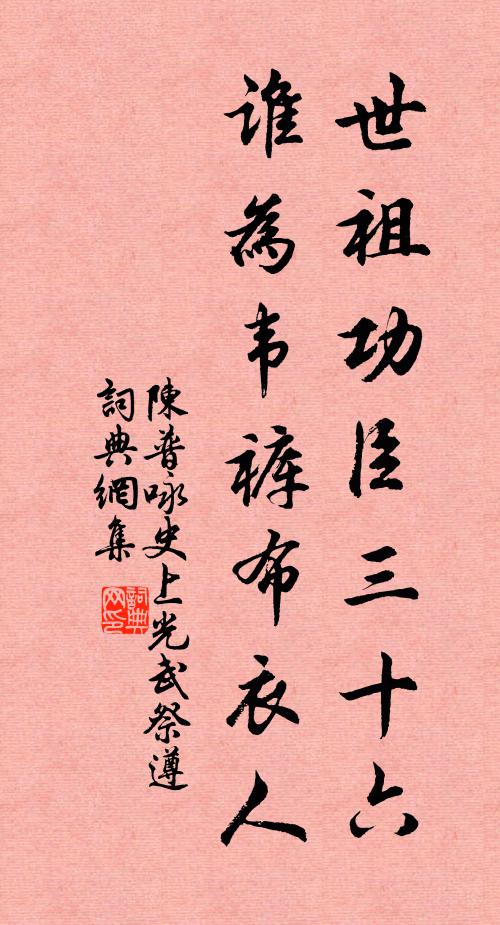 世祖功臣三十六
谁為韦裤布衣人
陳普咏史上光武祭遵
詞典網集
詞典网印